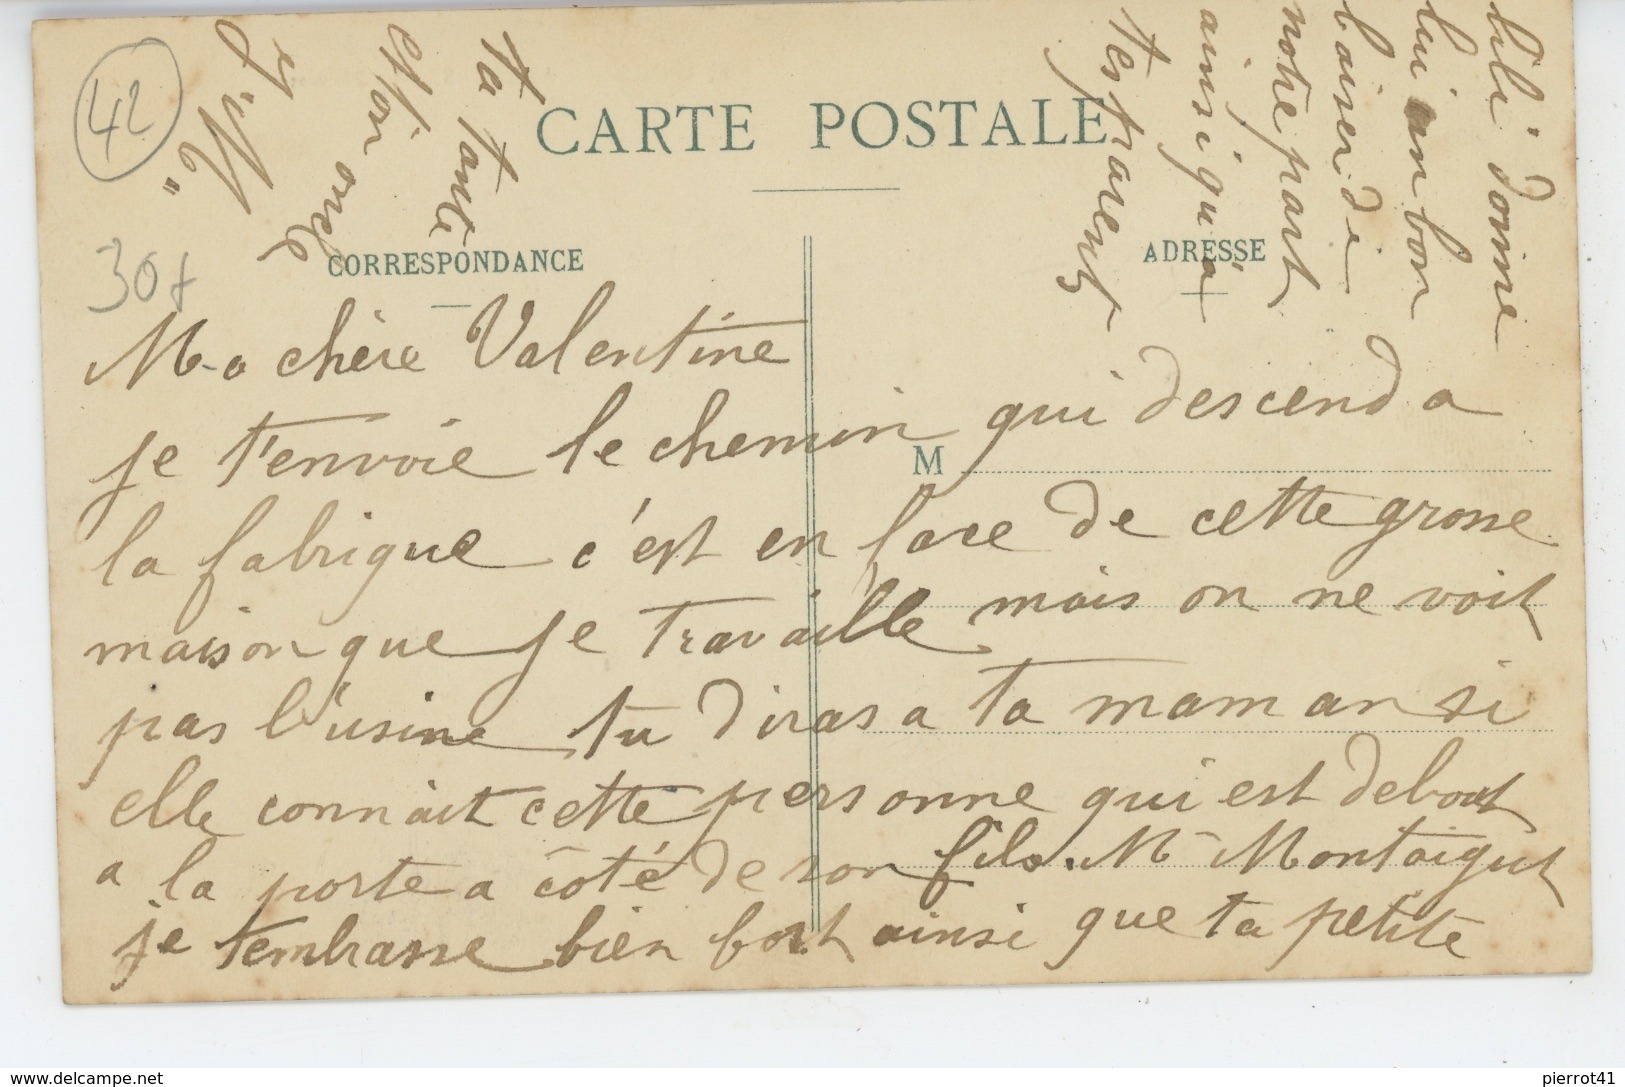 42
30f
CARTE POSTALE
CORRESPONDANCE
ADRESSE
M
Ma chère Valentine
je t'envoie le chemin qui descend a
la fabrique c'est en face de cette grosse
maison que je travaille mais on ne voit
pas l'usine tu diras a ta maman si
elle connait cette personne qui est debout
a la porte a côté de son fils. Mr Montaigut
je t'embrasse bien fort ainsi que ta petite
lili donne
lui un bon
baiser de
notre part
ainsi qu'à
tes parents
ta tante
et ton oncle
www.delcampe.net
pierrot41